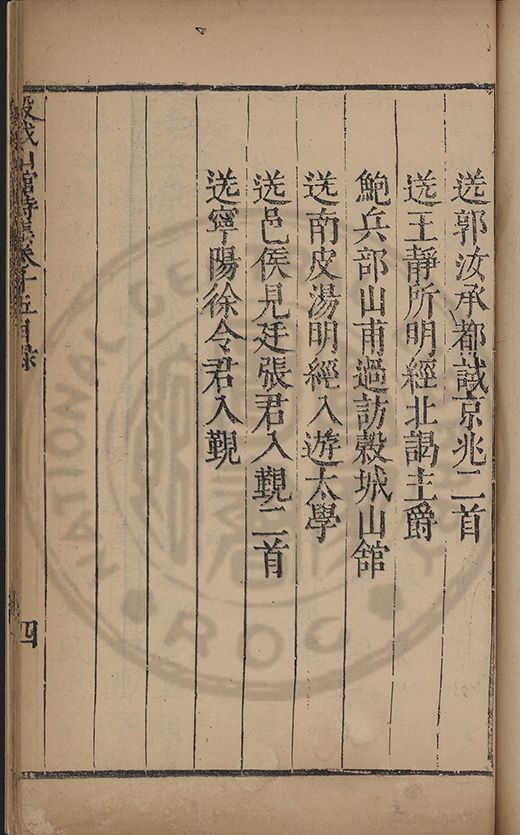 送郭汝承都試京兆二首
送王靜所明經北謁主爵
鮑兵部山甫過訪穀城山舘
送南皮湯明經入遊太學
送邑侯見廷張君入覲二首
送寧陽徐令君入覲
穀城山舘詩集卷十五目錄
四